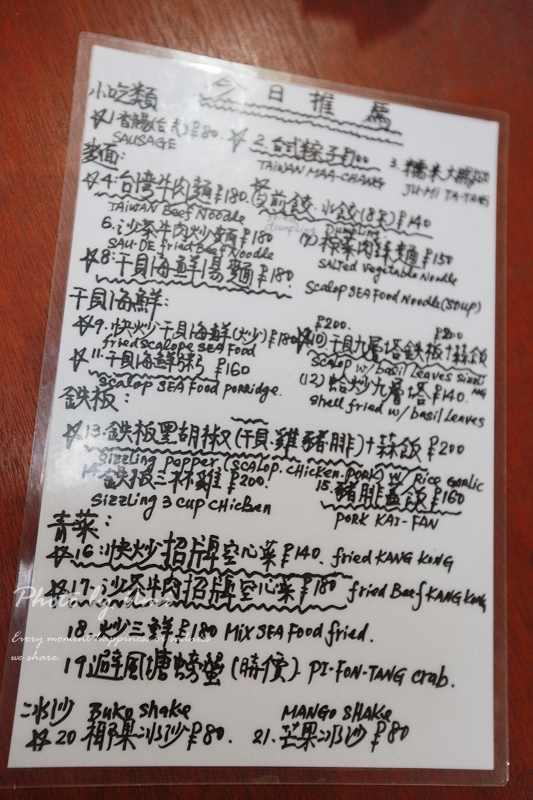 今日推薦
小吃類
☆1.香腸(台式)₱80. ☆2.台式粽子₱100 3.糯米大腸
SAUSAGE TAIWAN MAA-CHANG JU-MI TA-TANG
麵面:
☆4.台湾牛肉麵₱180. ☆⑤煎餃.水餃(8条)₱140
TAIWAN Beef Noodle Dumpling
6.沙茶牛肉炒麵₱180 (7)榨菜肉絲麵₱150
SAU-DE fried Beef Noodle SALTED Vegetable Noodle
☆8.干貝海鮮湯麵₱180. Scalop SEA Food Noodle (SOUP)
干貝海鮮: ₱200. ₱200
☆9.快炒干貝海鮮(炒)₱180 ☆10)干貝九層塔鉄板+蒜飯
fried scalope SEA Food Scalop w/ basil Leaves
☆11.干貝海鮮粥 ₱160 (12)蛤炒九層塔₱140.
scalop SEA Food porridge. Shell fried w/ basil Leaves
鉄板:
☆13.鉄板黑胡椒(干貝.雞豬腓)+蒜飯₱200
Sizzling Popper (scalop.CHicken.PORK) w/ Rice Garlic
14.鉄板三杯雞₱200. 15.豬腓蓋飯₱160
Sizzling 3 cup CHicken PORK KAI-FAN
青菜:
☆16.快炒招牌空心菜₱140. fried KANG KONG
☆17.沙茶牛肉招牌空心菜₱180 fried Beef KANG KONG
Photo by
18.炒三鮮₱180 Mix SEA Food fried.
Every moment happiness
we share.
19.避風塘螃蟹(時價). PI-FON-TANG crab.
冰沙 BUKO Shake MANGO SHAKE
☆20.椰果冰沙₱80. 21.芒果冰沙₱80